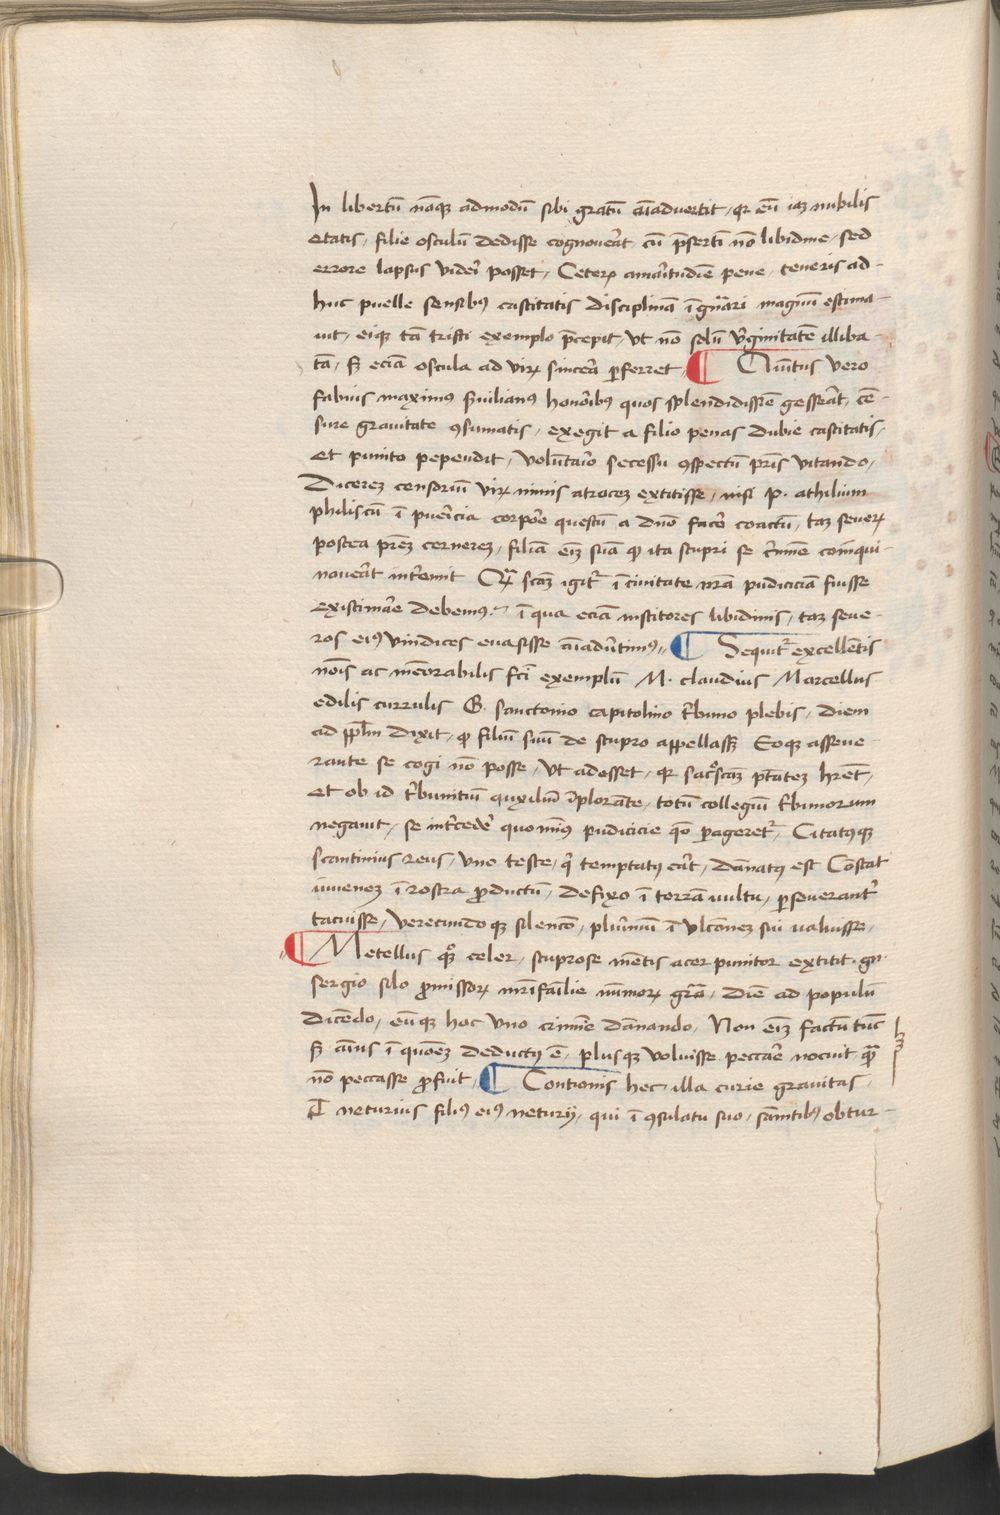 In libertū nāqꝫ admodū sibi gratū aīaduertit, qꝛ eū iaꝫ nubilis
etatis, filie osculū dedisse cognouerat, cū p̄sertī nō libidīne, sed
errore lapsus viderī posset, Ceteꝝ amaritudīe pene, teneris ad-
huc puelle sensibꝰ castitatis disciplinā ī gn̄ari magnū estima-
uit, eiqꝫ tā tristi exemplo p̄cepit, vt nō solū v̓ginitatē illiba-
tā, sꝫ eciā oscula ad viꝝ sincera ꝑferret, ¶ Quītus vero
fabius maximꝰ s̄uilianꝰ honoribꝰ quos splendidissīe gesserat, cē-
sure grauitate ꝯsumatis, exegit a filio penas dubie castitatis,
et punito pependit, volūtario secessu ꝯspectū pr̄is vitando,
Dicereꝫ censoriū viꝝ nimis atroceꝫ extitisse, nisi P. athilium
philiscū ī puericia corpore questū a dn̄o facere coactū, taꝫ seueꝝ
postea pr̄eꝫ cernereꝫ, filiā eīꝫ suā qꝛ ita stupri se crimīe coinqui-
nauerat interemit Quā sc̄aꝫ igit̄ ī ciuitate nr̄a pudiciciā fuisse
existimare debemꝰ, ī qua eciā institores libidinis, taꝫ seue-
ros eiꝰ vindices euasisse aīaduertimꝰ, ¶ Sequit̄ excellētis
nōis ac memorabilis fc̄i exemplū M. claudius Marcellus
edilis currulis G. sanctonio capitolino tribuno plebis, diem
ad ppl̄m dixit, ꝙ filiū suū de stupro appellassꝫ Eoqꝫ asseue-
rante se cogi nō posse, vt adesset, qꝛ sacrosc̄aꝫ ptāteꝫ hr̄et,
et ob id tribunitiū auxiliū īplorāte, totū collegiū tribunorum
negauit, se intercedere quominꝰ pudicicie qō ꝑageret̄, Citatꝰqꝫ
scantinius reus, vno teste, qͥ temptatꝰ erat, dānatꝰ est Cōstat
iuueneꝫ ī rostra ꝓductū, defixo ī terrā uultu, ꝑseueranter
tacuisse, verecundoqꝫ silencio, plurimū ī vlcioneꝫ sui valuisse,
¶ Metellus qꝫ celer, stuprose mētis acer punitor extitit. gn.
sergio silo ꝓmissoꝝ mr̄ifamilie nūmoꝝ gr̄a, diē ad populū
dicēdo, eūqꝫ hoc vno crimīe dānando, Non eīꝫ factū tūc
sꝫ aīus ī quoēꝫ deductꝰ ē, plusqꝫ voluisse peccare nocuit qā
nō peccasse ꝓfuit, ¶ Contionis hec, illa curie grauitas,
T neturius filiꝰ eiꝰ neturij, qui ī ꝯsulatu suo, sānitibꝰ obtur-